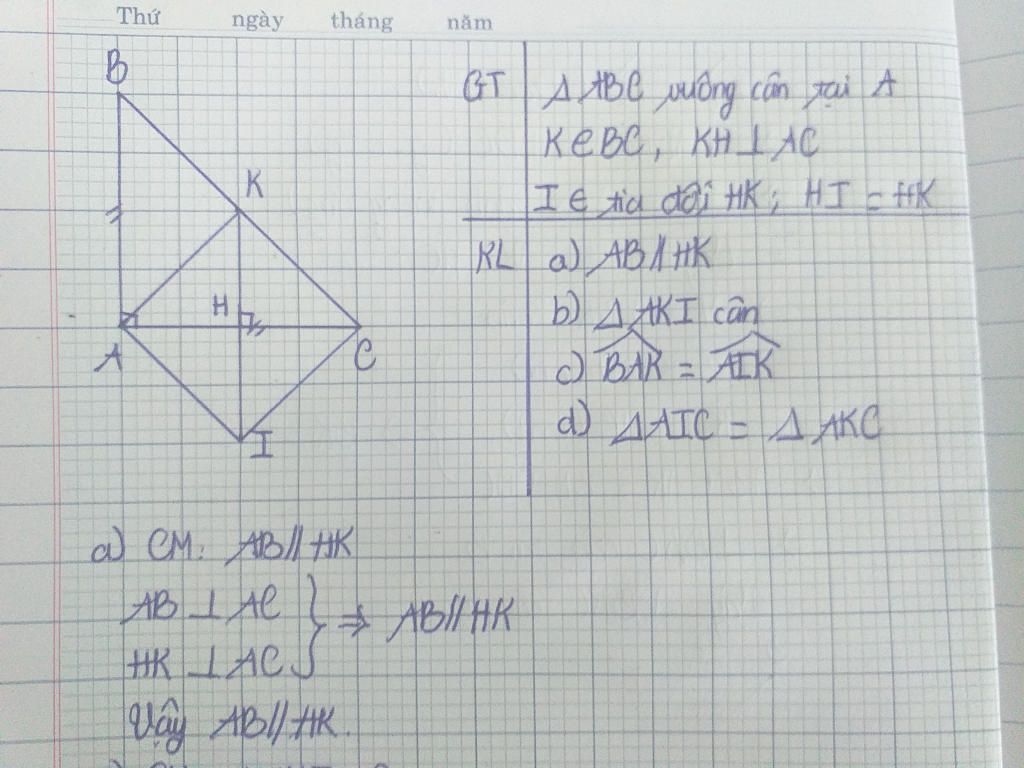 Thứ ngày tháng năm
B
K
H
A
C
I
GT
Δ ABC vuông cân tại A
K∈BC, KH⊥AC
I∈ tia đối HK; HI = HK
KL
a) AB//HK
b) Δ AKI cân
c) \widehat{BAK} = \widehat{AIK}
d) ΔAIC = Δ AKC
a) CM: AB//HK
AB ⊥ AC
HK ⊥ AC } ⇒ AB//HK
Vậy AB//HK.